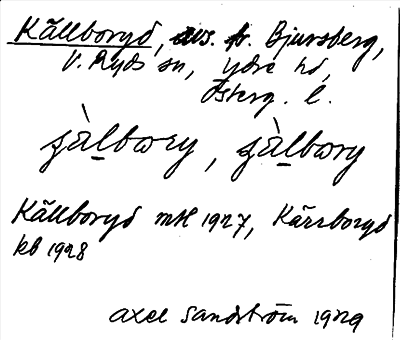 Källboryd, avs. fr. Bjursberg,
V. Ryds sn, Ydre hd,
Österg. l.
sàlbωry, sàlbωry
Källboryd mtl 1927, Kärrboryd
kb 1928
Axel Sandström 1929